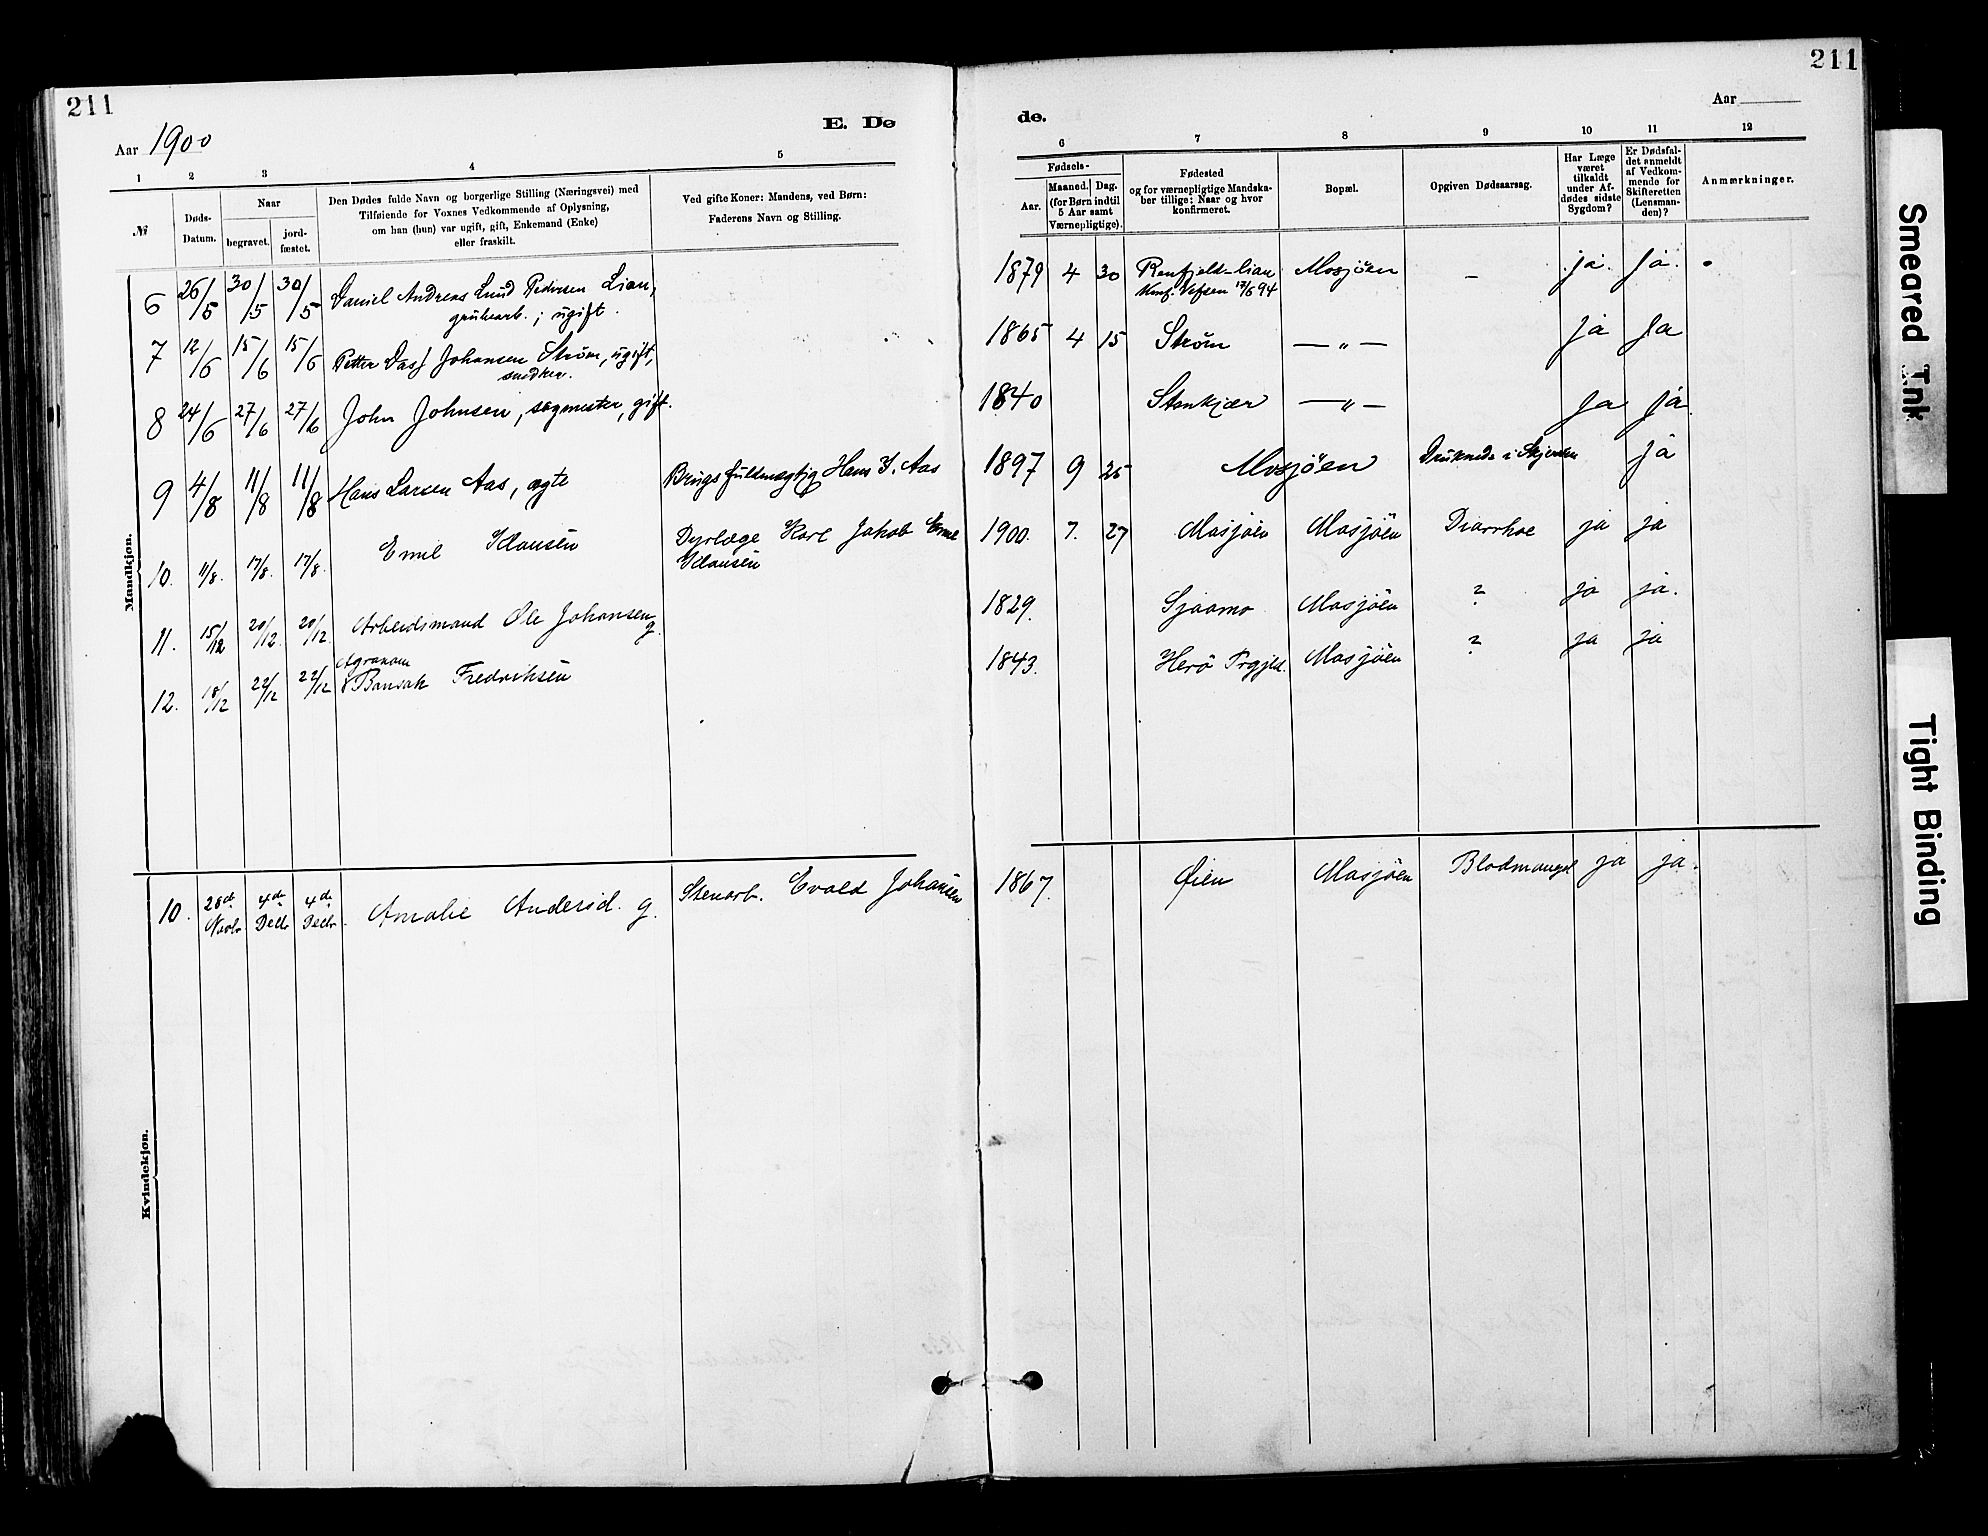 211
211
Aar 1900
E. Dø
de.
Aar
1 2 3 4 5
6 7 8 9 10 11 12
№
Døds-
Datum.
Naar
begravet.
jord-
fæstet.
Den Dødes fulde Navn og borgerlige Stilling (Næringsvei) med
Tilføiende for Voxnes Vedkommende af Oplysning,
om han (hun) var ugift, gift, Enkemand (Enke)
eller fraskilt.
Ved gifte Koner: Mandens, ved Børn:
Faderens Navn og Stilling.
Fødsels-
Aar.
Maaned. Dag.
(for Børn indtil
5 Aar samt
Værnepligtige).
Fødested
og for værnepligtige Mandska-
ber tillige: Naar og hvor
konfirmeret.
Bopæl.
Opgiven Dødsaarsag.
Har Læge
været
tilkaldt
under Af-
dødes sidste
Sygdom?
Er Dødsfal-
det anmeldt
af Vedkom-
mende for
Skifteretten
(Lensman-
den)?
Anmærkninger.
Mandkjøn.
6 26/5 30/5 30/5 Daniel Andreas Lund Pedersen Lian, 1879 4 30 Renfjeld-lian Mosjöen - ja. ja.
grubearb.; ugift. Konf. Vefsen 17/6 94
7 12/6 15/6 15/6 Petter Dass Johansen Strøm, ugift, 1865 4 15 Strøm — „ — ja ja
snedker.
8 24/6 27/6 27/6 John Johnsen, sagmester, gift. 1840 Stenkjær — „ — ja ja
9 4/8 11/8 11/8 Hans Larsen Aas, ægte Brugsfuldmægtig Hans J. Aas 1897 9 25 Mosjöen Druknede i Skjerven ja
10. 11/8. 17/8. 17/8. Emil Klausen Dyrlæge Karl Jakob Emil 1900. 7. 27 Mosjöen Mosjöen Diarrhoe ja ja
Klausen
11. 15/12 20/12 20/12 Arbeidsmand Ole Johansen g. 1829. Sjaamo Mosjöen ? ja ja.
Agronom
12. 18/12 22/12 22/12 Fredriksen 1843. Herö Prgjld. Mosjöen ? ja ja
Kvindekjøn.
10. 28de 4de 4de Amalie Andersd. g. Stenarb. Evald Johansen 1867. Øien Mosjöen Blodmangel ja ja.
Novbr. Decbr Decbr.
Smeared Ink
Tight Binding